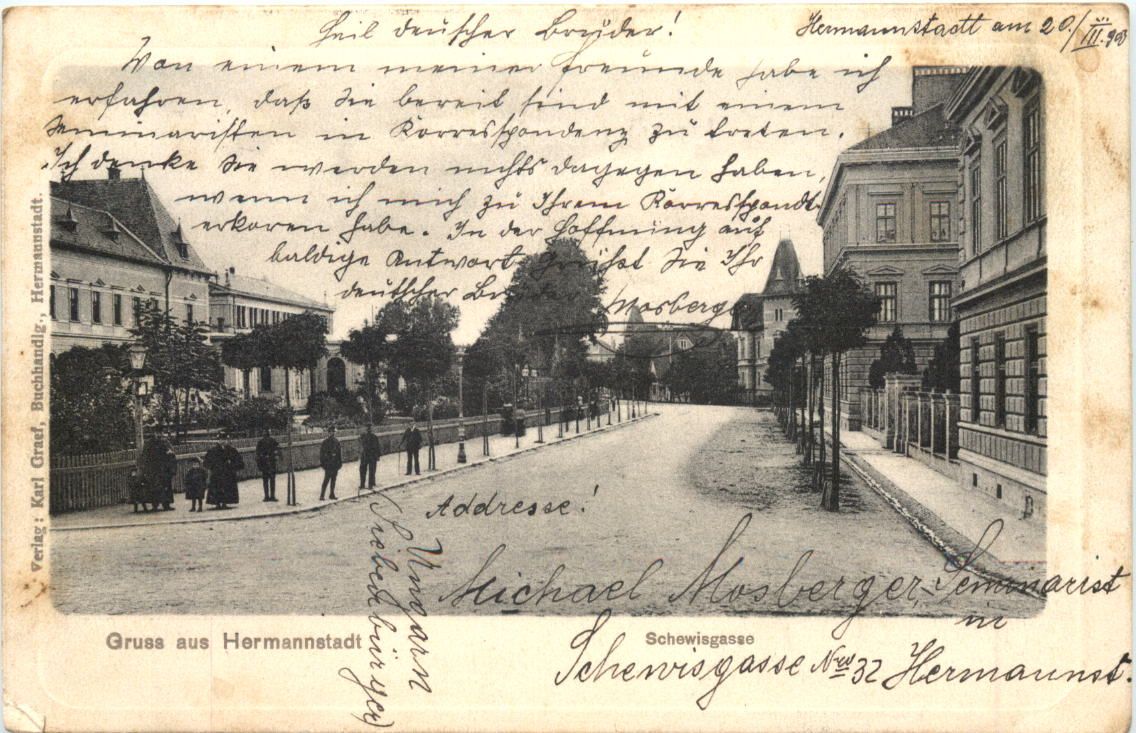 Heil deutscher Brüder!
Hermannstadt am 20./III. 903
Von einem meiner Freunde habe ich
erfahren, daß Sie bereit sind mit einem
Seminaristen in Korrespondenz zu treten.
Ich denke Sie werden nichts dagegen haben,
wenn ich mich zu Ihrem Korrespondt.
erkoren habe. In der Hoffnung auf
baldige Antwort grüßt Sie Ihr
deutscher Bruder Mosberg
Verlag: Karl Graef, Buchhandlg., Hermannstadt.
Addresse!
Michael Mosberger, Seminarist
in
Schewisgasse Nro 32 Hermannst.
Ungarn
(Siebenbürgen)
Gruss aus Hermannstadt
Schewisgasse